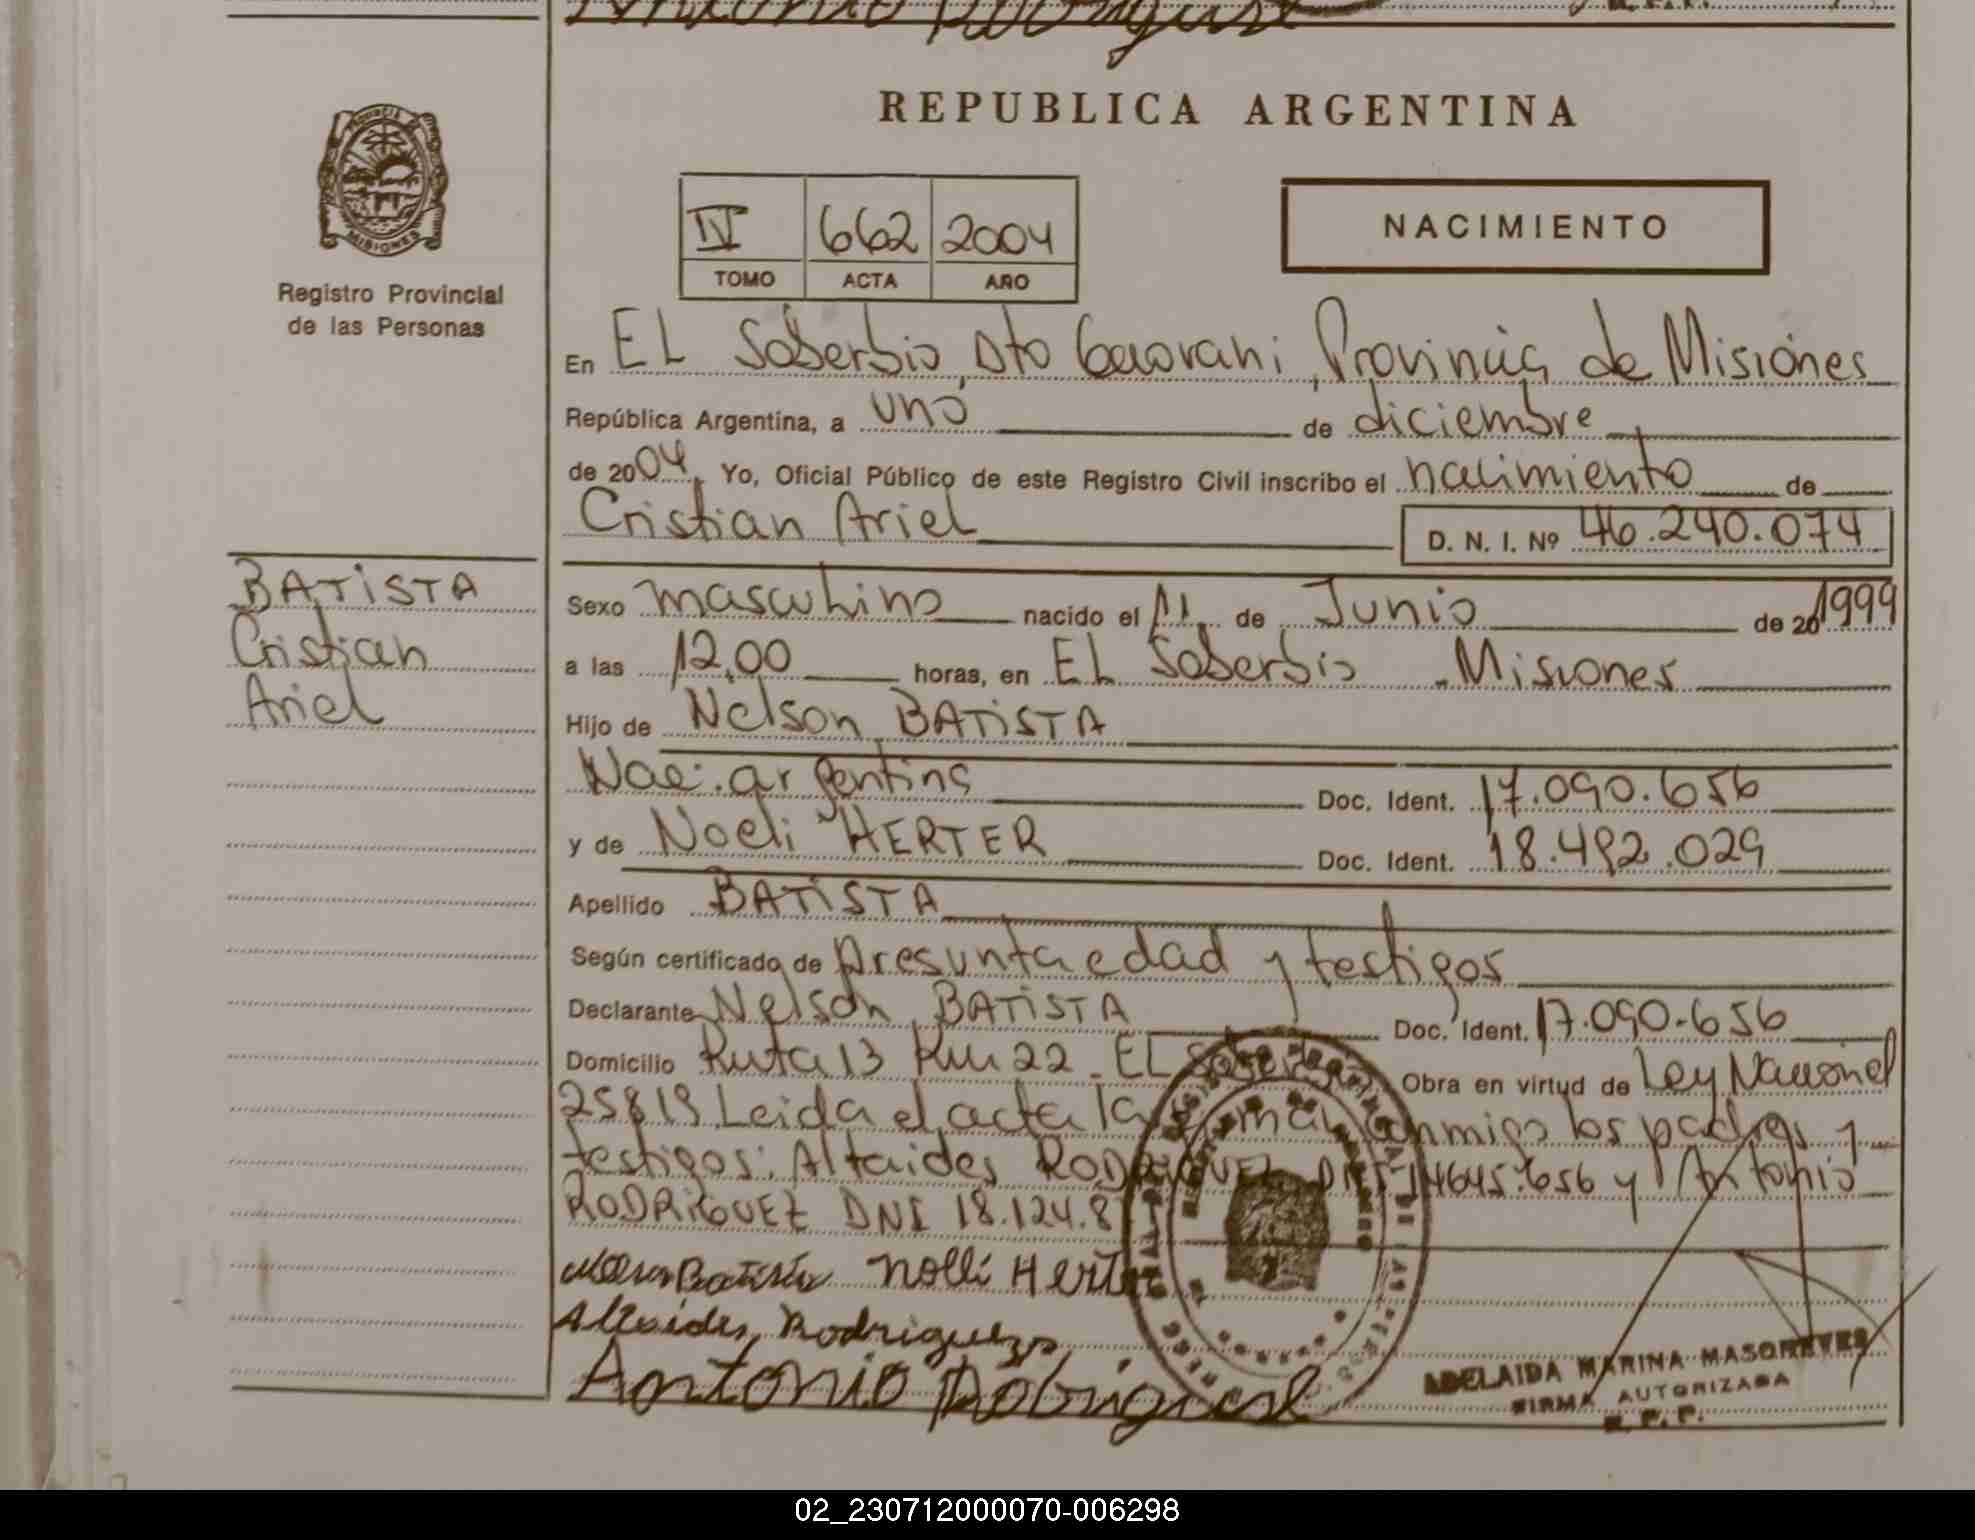 REPUBLICA ARGENTINA
MISIONES
Registro Provincial
de las Personas
IV 662 2004
TOMO ACTA AÑO
NACIMIENTO
En EL Soberbio, Dto Guarani, Provincia de Misiones
República Argentina, a uno de diciembre
de 2004. Yo, Oficial Público de este Registro Civil inscribo el nacimiento de
Cristian Ariel D. N. I. Nº 46.240.074
BATISTA
Cristian
Ariel
Sexo masculino nacido el 11 de Junio de 20 1999
a las 12,00 horas, en EL Soberbio - Misiones
Hijo de Nelson BATISTA
Nac. argentina Doc. Ident. 17.090.656
y de Noeli HERTER Doc. Ident. 18.492.029
Apellido BATISTA
Según certificado de presunta edad y testigos
Declarante Nelson BATISTA Doc. Ident. 17.090.656
Domicilio Ruta 13 Km 22 - EL Soberbio Obra en virtud de Ley Nacional
25819. Leida el acta la firman conmigo los padres y
testigos: Altaides RODRIGUEZ DNI 14645.656 y Antonio
RODRIGUEZ DNI 18.124.8
Nelson Batista Nolli Herter
Alcides Rodriguez
Antonio Rodriguez
ADELAIDA MARINA
FIRMA AUTORIZADA
R. P. P.
02_230712000070-006298